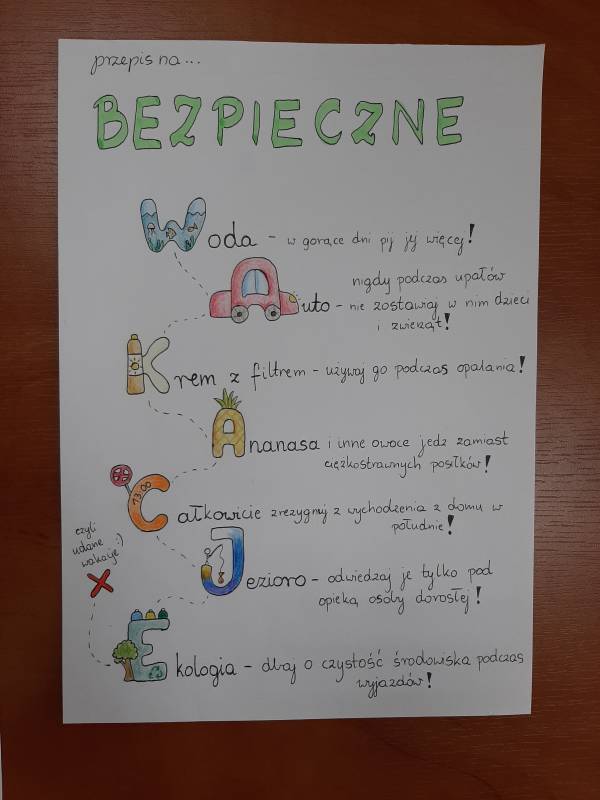 przepis na...
BEZPIECZNE
Woda - w gorące dni pij jej więcej!
nigdy podczas upałów
Auto - nie zostawiaj w nim dzieci
i zwierząt!
Krem z filtrem - używaj go podczas opalania!
Ananasa i inne owoce jedz zamiast
ciężkostrawnych posiłków!
13:00
Całkowicie zrezygnuj z wychodzenia z domu w
południe!
czyli
udane :)
wakacje
Jezioro - odwiedzaj je tylko pod
opieką osoby dorosłej!
Ekologia - dbaj o czystość środowiska podczas
wyjazdów!